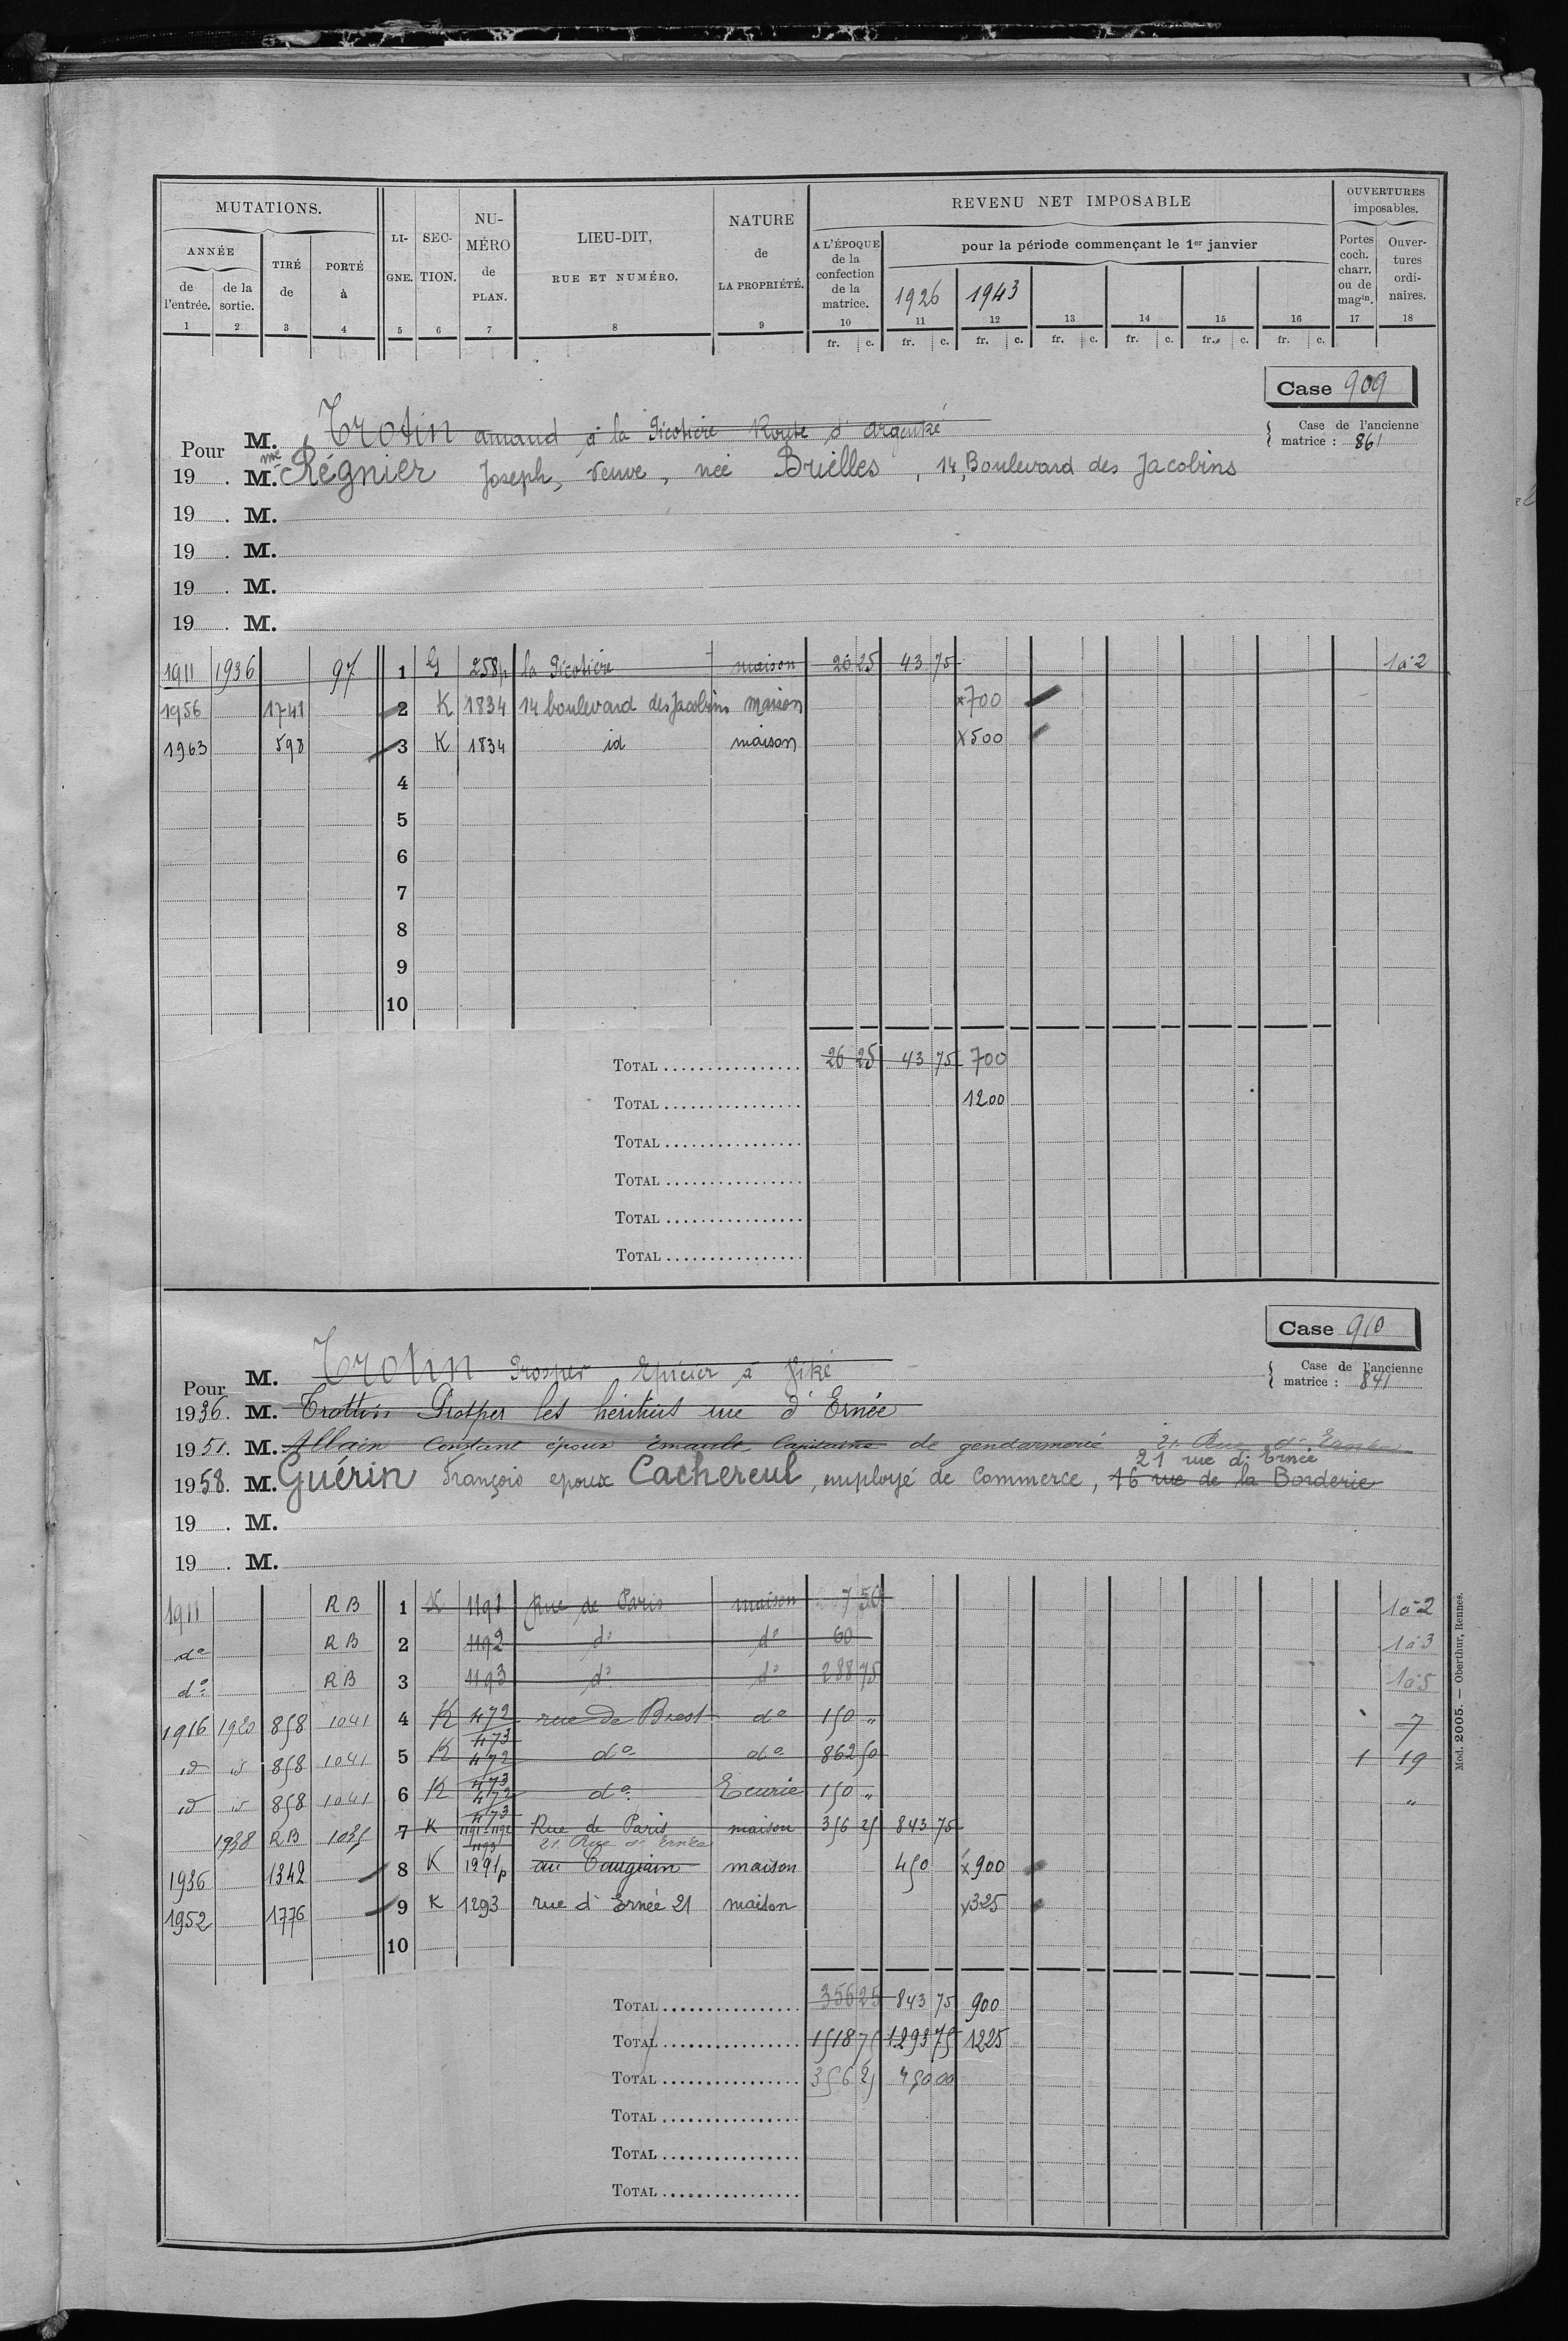 MUTATIONS. LI- SEC- NU- LIEU-DIT, NATURE REVENU NET IMPOSABLE OUVERTURES imposables.
ANNÉE TIRÉ PORTÉ GNE. TION. MÉRO RUE ET NUMÉRO. de A L'ÉPOQUE pour la période commençant le 1er janvier Portes Ouver-
de l'entrée. de la sortie. de à de PLAN. LA PROPRIÉTÉ. de la confection de la matrice. 1926 1943 coch. charr. ou de magin. tures ordi- naires.
1 2 3 4 5 6 7 8 9 10 11 12 13 14 15 16 17 18
fr. c. fr. c. fr. c. fr. c. fr. c. fr. c. fr. c.
Case 909
Pour M. Trotin amand à la Picotière Route d'argentré
Case de l'ancienne matrice : 861
19 . M.me Régnier Joseph, Veuve, née Brielles, 14, Boulevard des Jacobins
19 . M.
19 . M.
19 . M.
19 . M.
1911 1936 97 1 G 258p la Picotière maison 26 25 43 75 1à2
1956 1741 2 K 1834 14 boulevard des Jacobins maison x700
1963 598 3 K 1834 id maison x500
4
5
6
7
8
9
10
TOTAL 26 25 43 75 700
TOTAL 1200
TOTAL
TOTAL
TOTAL
TOTAL
Case 910
Pour M. Trotin Prosper Epicier à Vitré
Case de l'ancienne matrice : 841
1936. M. Trottin Prosper les héritiers rue d'Ernée
1951. M. Allain Constant époux Capitaine de gendarmerie 21 Rue d'Ernée
21 rue d'Ernée
1958. M. Guérin François epoux Cachereul, employé de Commerce, 16 rue de la Borderie
19 . M.
19 . M.
1911 RB 1 K 1191 Rue de Paris maison 7 50 1à2
do RB 2 1192 do do 60 1à3
do RB 3 1193 do do 288 75 1à5
1916 1920 858 1041 4 K 472 473 rue de Brest do 150 " 7
id id 858 1041 5 K 472 473 do do 862 50 1 19
id id 858 1041 6 K 472 473 do Ecurie 150 " "
1938 RB 1035 7 K 1191 1192 1193 Rue de Paris maison 356 25 843 75
21 Rue d'Ernée
1936 1342 8 K 1291p maison 450 x900
1952 1776 9 K 1293 rue d'Ernée 21 maison x325
10
TOTAL 356 25 843 75 900
TOTAL 1518 75 1293 75 1225
TOTAL 356 25 450 00
TOTAL
TOTAL
TOTAL
Mod. 2005. — Oberthur, Rennes.